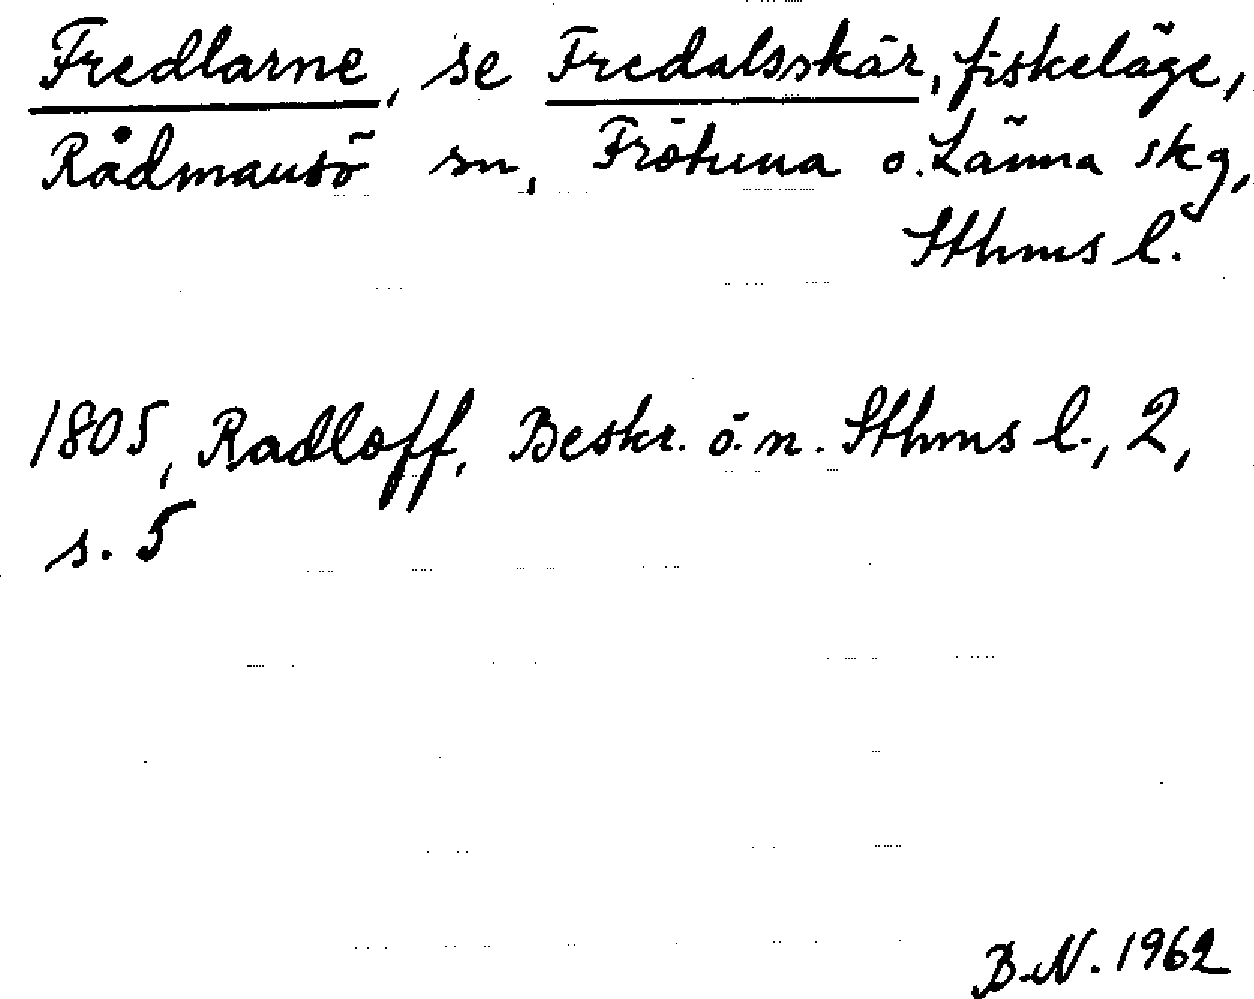 Fredlarne, se Fredalsskär, fiskeläge,
Rådmansö sn, Frötuna o. Länna skg,
Sthms l.
1805, Radloff, Beskr. ö. n. Sthms l., 2,
s. 5
B.N. 1962